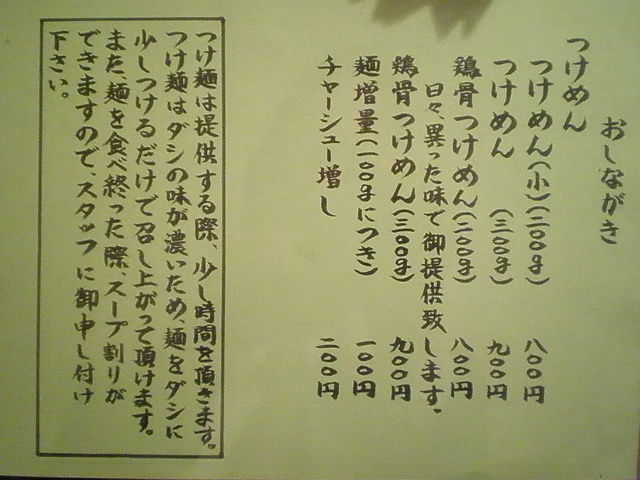 おしながき
つけめん
つけめん(小)(二〇〇g) 八〇〇円
つけめん (三〇〇g) 九〇〇円
鶏骨つけめん(二〇〇g) 八〇〇円
日々、異った味で御提供致します。
鶏骨つけめん(三〇〇g) 九〇〇円
麺増量(一〇〇gにつき) 一〇〇円
チャーシュー増し 二〇〇円
つけ麺は提供する際、少し時間を頂きます。
つけ麺はダシの味が濃いため、麺をダシに
少しつけるだけで召し上がって頂けます。
また、麺を食べ終った際、スープ割りが
できますので、スタッフに御申し付け
下さい。